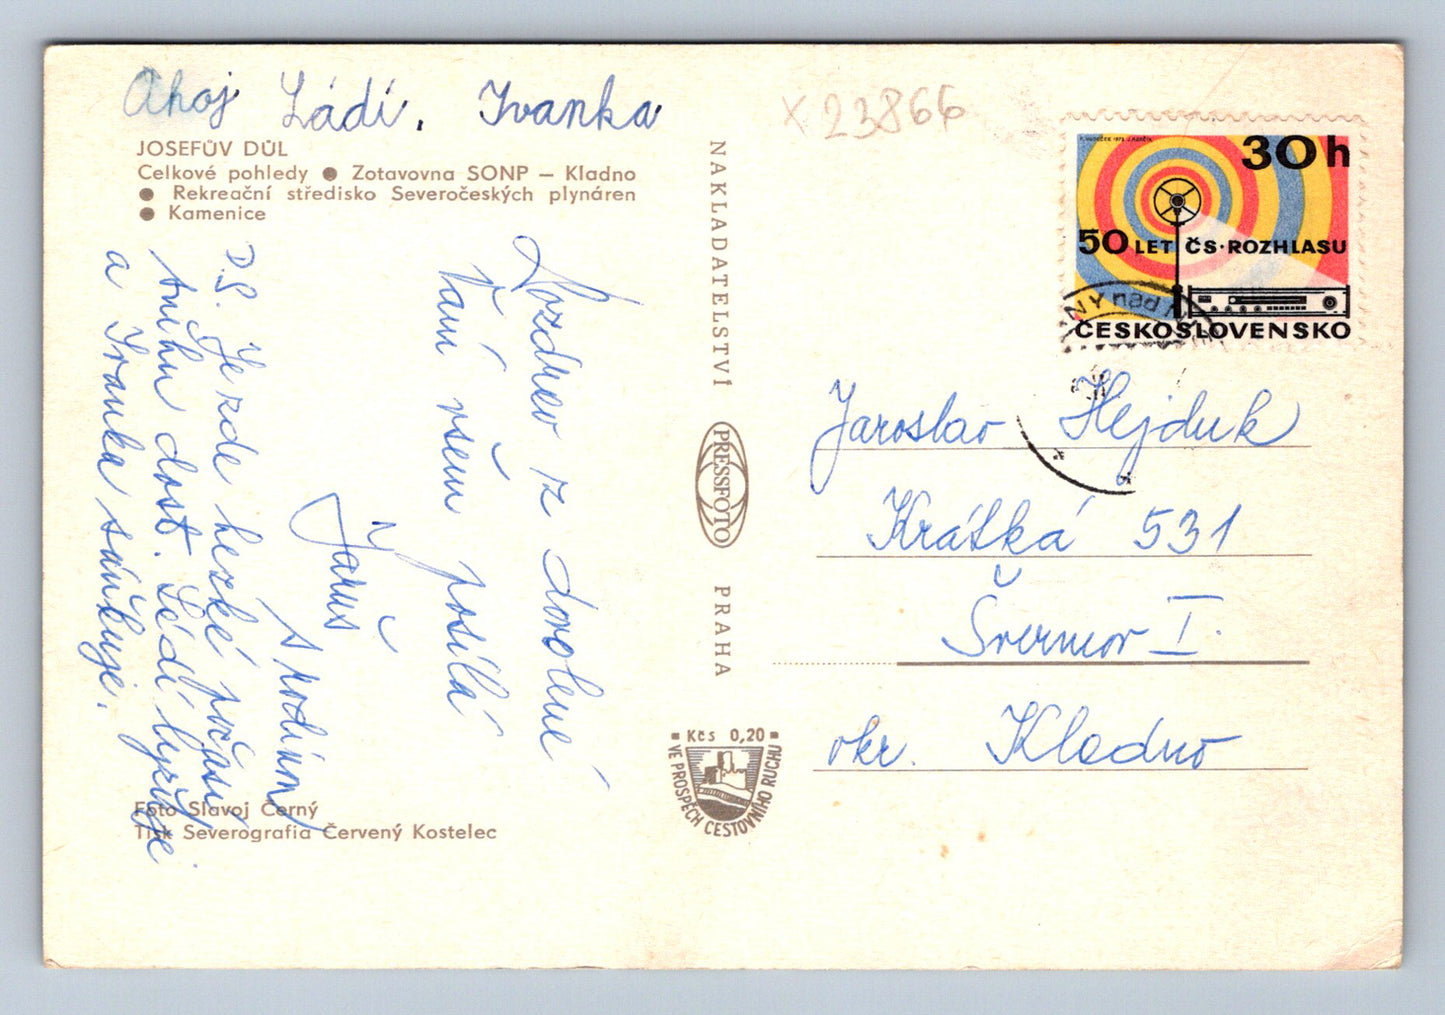 Ahoj Ládí, Ivanka
x 23866
JOSEFŮV DŮL
Celkové pohledy ● Zotavovna SONP – Kladno
● Rekreační středisko Severočeských plynáren
● Kamenice
Pozdrav z dovolené
Vám všem posílá
Jaruš
s rodinou
P.S. Je zde hezké počasí
sněhu dost. Ládí lyžuje
a Ivanka sáňkuje.
Foto Slavoj Černý
Tisk Severografia Červený Kostelec
NAKLADATELSTVÍ
PRESSFOTO
PRAHA
Kčs 0,20
VE PROSPĚCH CESTOVNÍHO RUCHU
30 h
50 LET ČS·ROZHLASU
ČESKOSLOVENSKO
NY nad
Jaroslav Hejduk
Krátká 531
Švermov I.
okr. Kladno